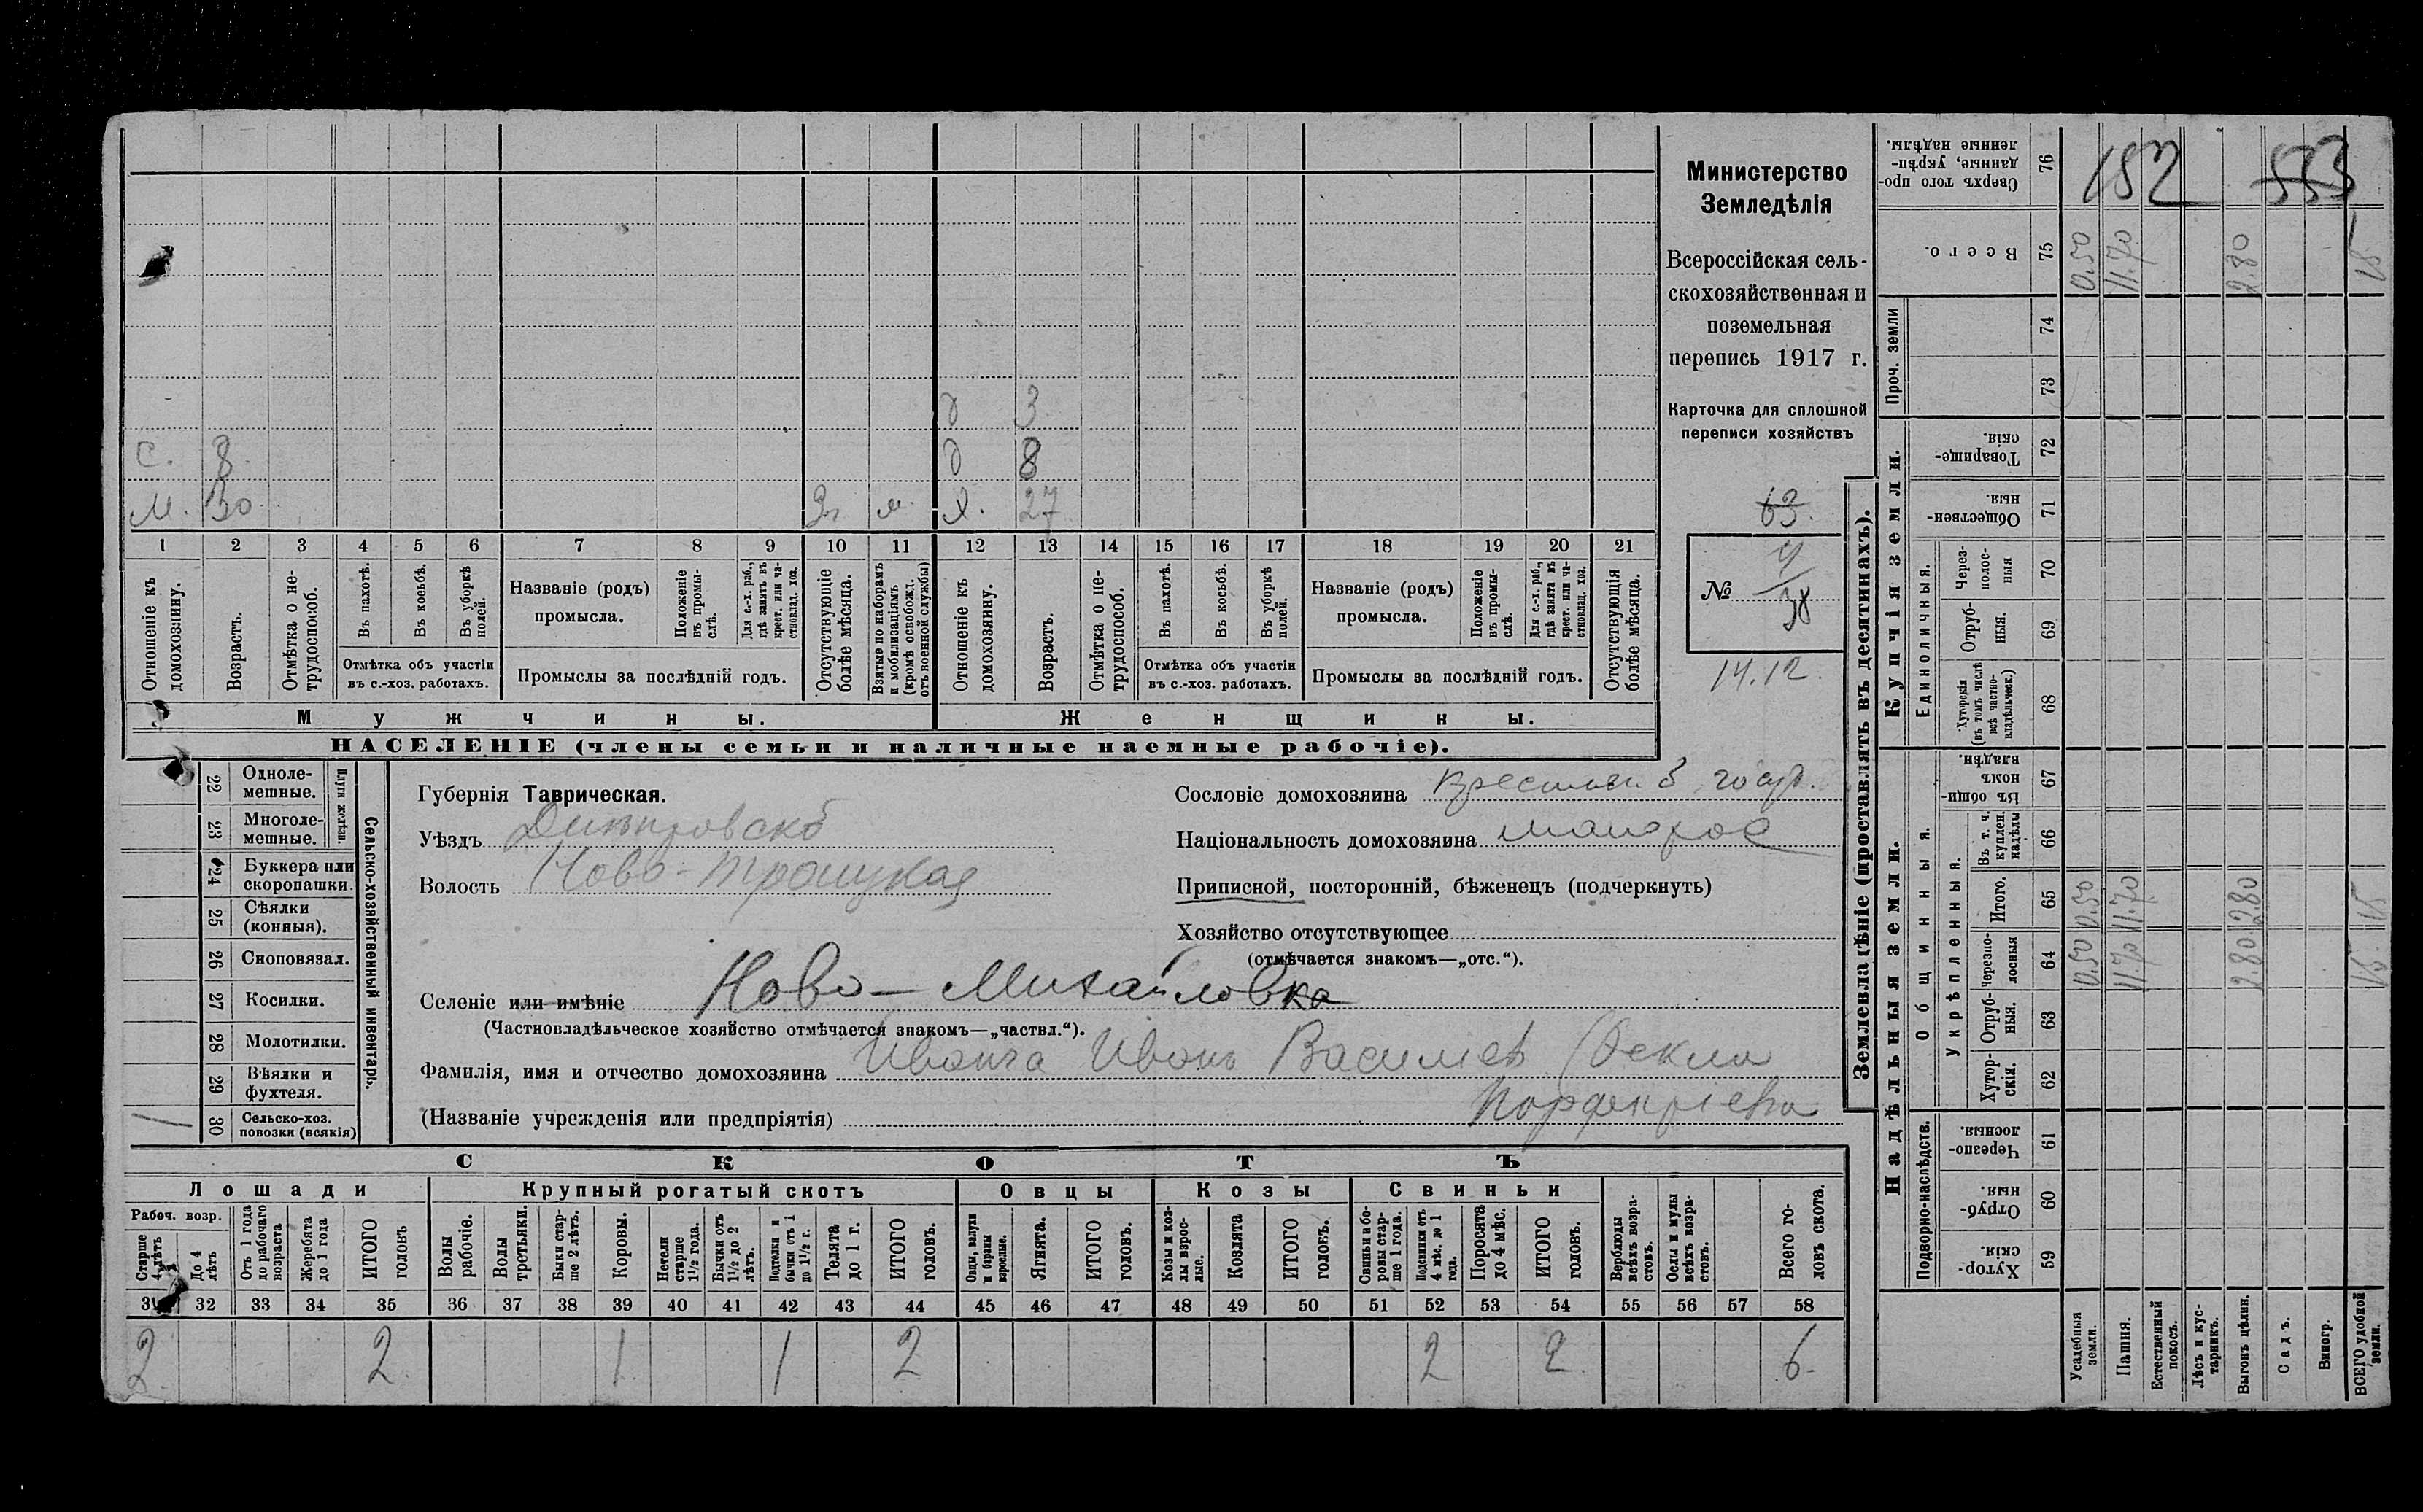 Министерство
Земледѣлія
Всероссійская сель-
скохозяйственная и
поземельная
перепись 1917 г.
Карточка для сплошной
переписи хозяйствъ
63.
№ 38
14.12.
д 3
С. 8. д 8
М. 30 м. Х. 27
1 2 3 4 5 6 7 8 9 10 11 12 13 14 15 16 17 18 19 20 21
Отношеніе къ домохозяину.
Возрастъ.
Отмѣтка о не-трудоспособ.
Въ пахотѣ.
Въ косьбѣ.
Въ уборкѣ полей.
Отмѣтка объ участіи
въ с.-хоз. работахъ.
Названіе (родъ)
промысла.
Положеніе въ промы-слѣ.
Для с.-х. раб., гдѣ занятъ въ крест. или ча-стновлад. хоз.
Промыслы за послѣдній годъ.
Отсутствующіе болѣе мѣсяца.
Взятые по наборамъ и мобилизаціямъ (кромѣ освобожд. отъ военной службы)
Отношеніе къ домохозяину.
Возрастъ.
Отмѣтка о не-трудоспособ.
Въ пахотѣ.
Въ косьбѣ.
Въ уборкѣ полей.
Отмѣтка объ участіи
въ с.-хоз. работахъ.
Названіе (родъ)
промысла.
Положеніе въ промы-слѣ.
Для с.-х. раб., гдѣ занята въ крест. или ча-стновлад. хоз.
Промыслы за послѣдній годъ.
Отсутствующія болѣе мѣсяца.
Мужчины. Женщины.
НАСЕЛЕНІЕ (члены семьи и наличные наемные рабочіе).
Сельско-хозяйственный инвентарь.
Плуги желѣзн.
22 Одноле-мешные.
23 Многоле-мешные.
24 Буккера или скоропашки.
25 Сѣялки (конныя).
26 Сноповязал.
27 Косилки.
28 Молотилки.
29 Вѣялки и фухтеля.
1 30 Сельско-хоз. повозки (всякія)
Губернія Таврическая.
Уѣздъ Днѣпровскій
Волость Ново-Троицкая
Сословіе домохозяина
Національность домохозяина малорос
Приписной, посторонній, бѣженецъ (подчеркнуть)
Хозяйство отсутствующее
(отмѣчается знакомъ—„отс.“).
Селеніе или имѣніе Ново-Михайловка
(Частновладѣльческое хозяйство отмѣчается знакомъ—„частвл.“).
Фамилія, имя и отчество домохозяина Иванъ Васильев
(Названіе учрежденія или предпріятія)
СКОТЪ
Лошади Крупный рогатый скотъ Овцы Козы Свиньи
Рабоч. возр.
Старше 4 лѣтъ
До 4 лѣтъ
Отъ 1 года до рабочаго возраста
Жеребята до 1 года
ИТОГО головъ
Волы рабочіе.
Волы третьяки.
Быки стар-ше 2 лѣтъ.
Коровы.
Нетели старше 1½ года.
Бычки отъ 1½ до 2 лѣтъ.
Подтелки и бычки отъ 1 до 1½ г.
Телята до 1 г.
ИТОГО головъ.
Овцы, валухи и бараны взрослые.
Ягнята.
ИТОГО головъ.
Козы и коз-лы взрос-лые.
Козлята
ИТОГО головъ.
Свиньи и бо-ровы стар-ше 1 года.
Подсвинки отъ 4 мѣс. до 1 года.
Поросята до 4 мѣс.
ИТОГО головъ.
Верблюды всѣхъ возра-стовъ.
Ослы и мулы всѣхъ возра-стовъ.
Всего го-ловъ скота.
31 32 33 34 35 36 37 38 39 40 41 42 43 44 45 46 47 48 49 50 51 52 53 54 55 56 57 58
2 2 1 1 2 2 2 6
Землевладѣніе (проставлять въ десятинахъ).
Надѣльныя земли. Купчія земли. Проч. земли
Подворно-наслѣдств.
Общинныя.
Укрѣпленныя.
Единоличныя.
59 Хутор-скія.
60 Отруб-ныя.
61 Черезпо-лосныя.
62 Хутор-скія.
63 Отруб-ныя.
64 Черезпо-лосныя
65 Итого.
66 Въ т. ч. куплен. надѣлы
67 Въ общи-номъ владѣн.
68 Хуторскія (въ томъ числѣ всѣ частно-владѣльческ.)
69 Отруб-ныя.
70 Через-полос-ныя
71 Обществен-ныя.
72 Товарище-скія.
73
74
75 Всего.
76 Сверхъ того про-данные, укрѣп-ленные надѣлы.
Усадебныя земли. 0.50 0.50 0.50
Пашня. 11.70 11.70 11.70
Естественный покосъ.
Лѣсъ и кус-тарникъ.
Выгонъ цѣлин. 2.80 2.80 2.80
Садъ.
Виногр.
ВСЕГО удобной земли. 15 15 15
152
553